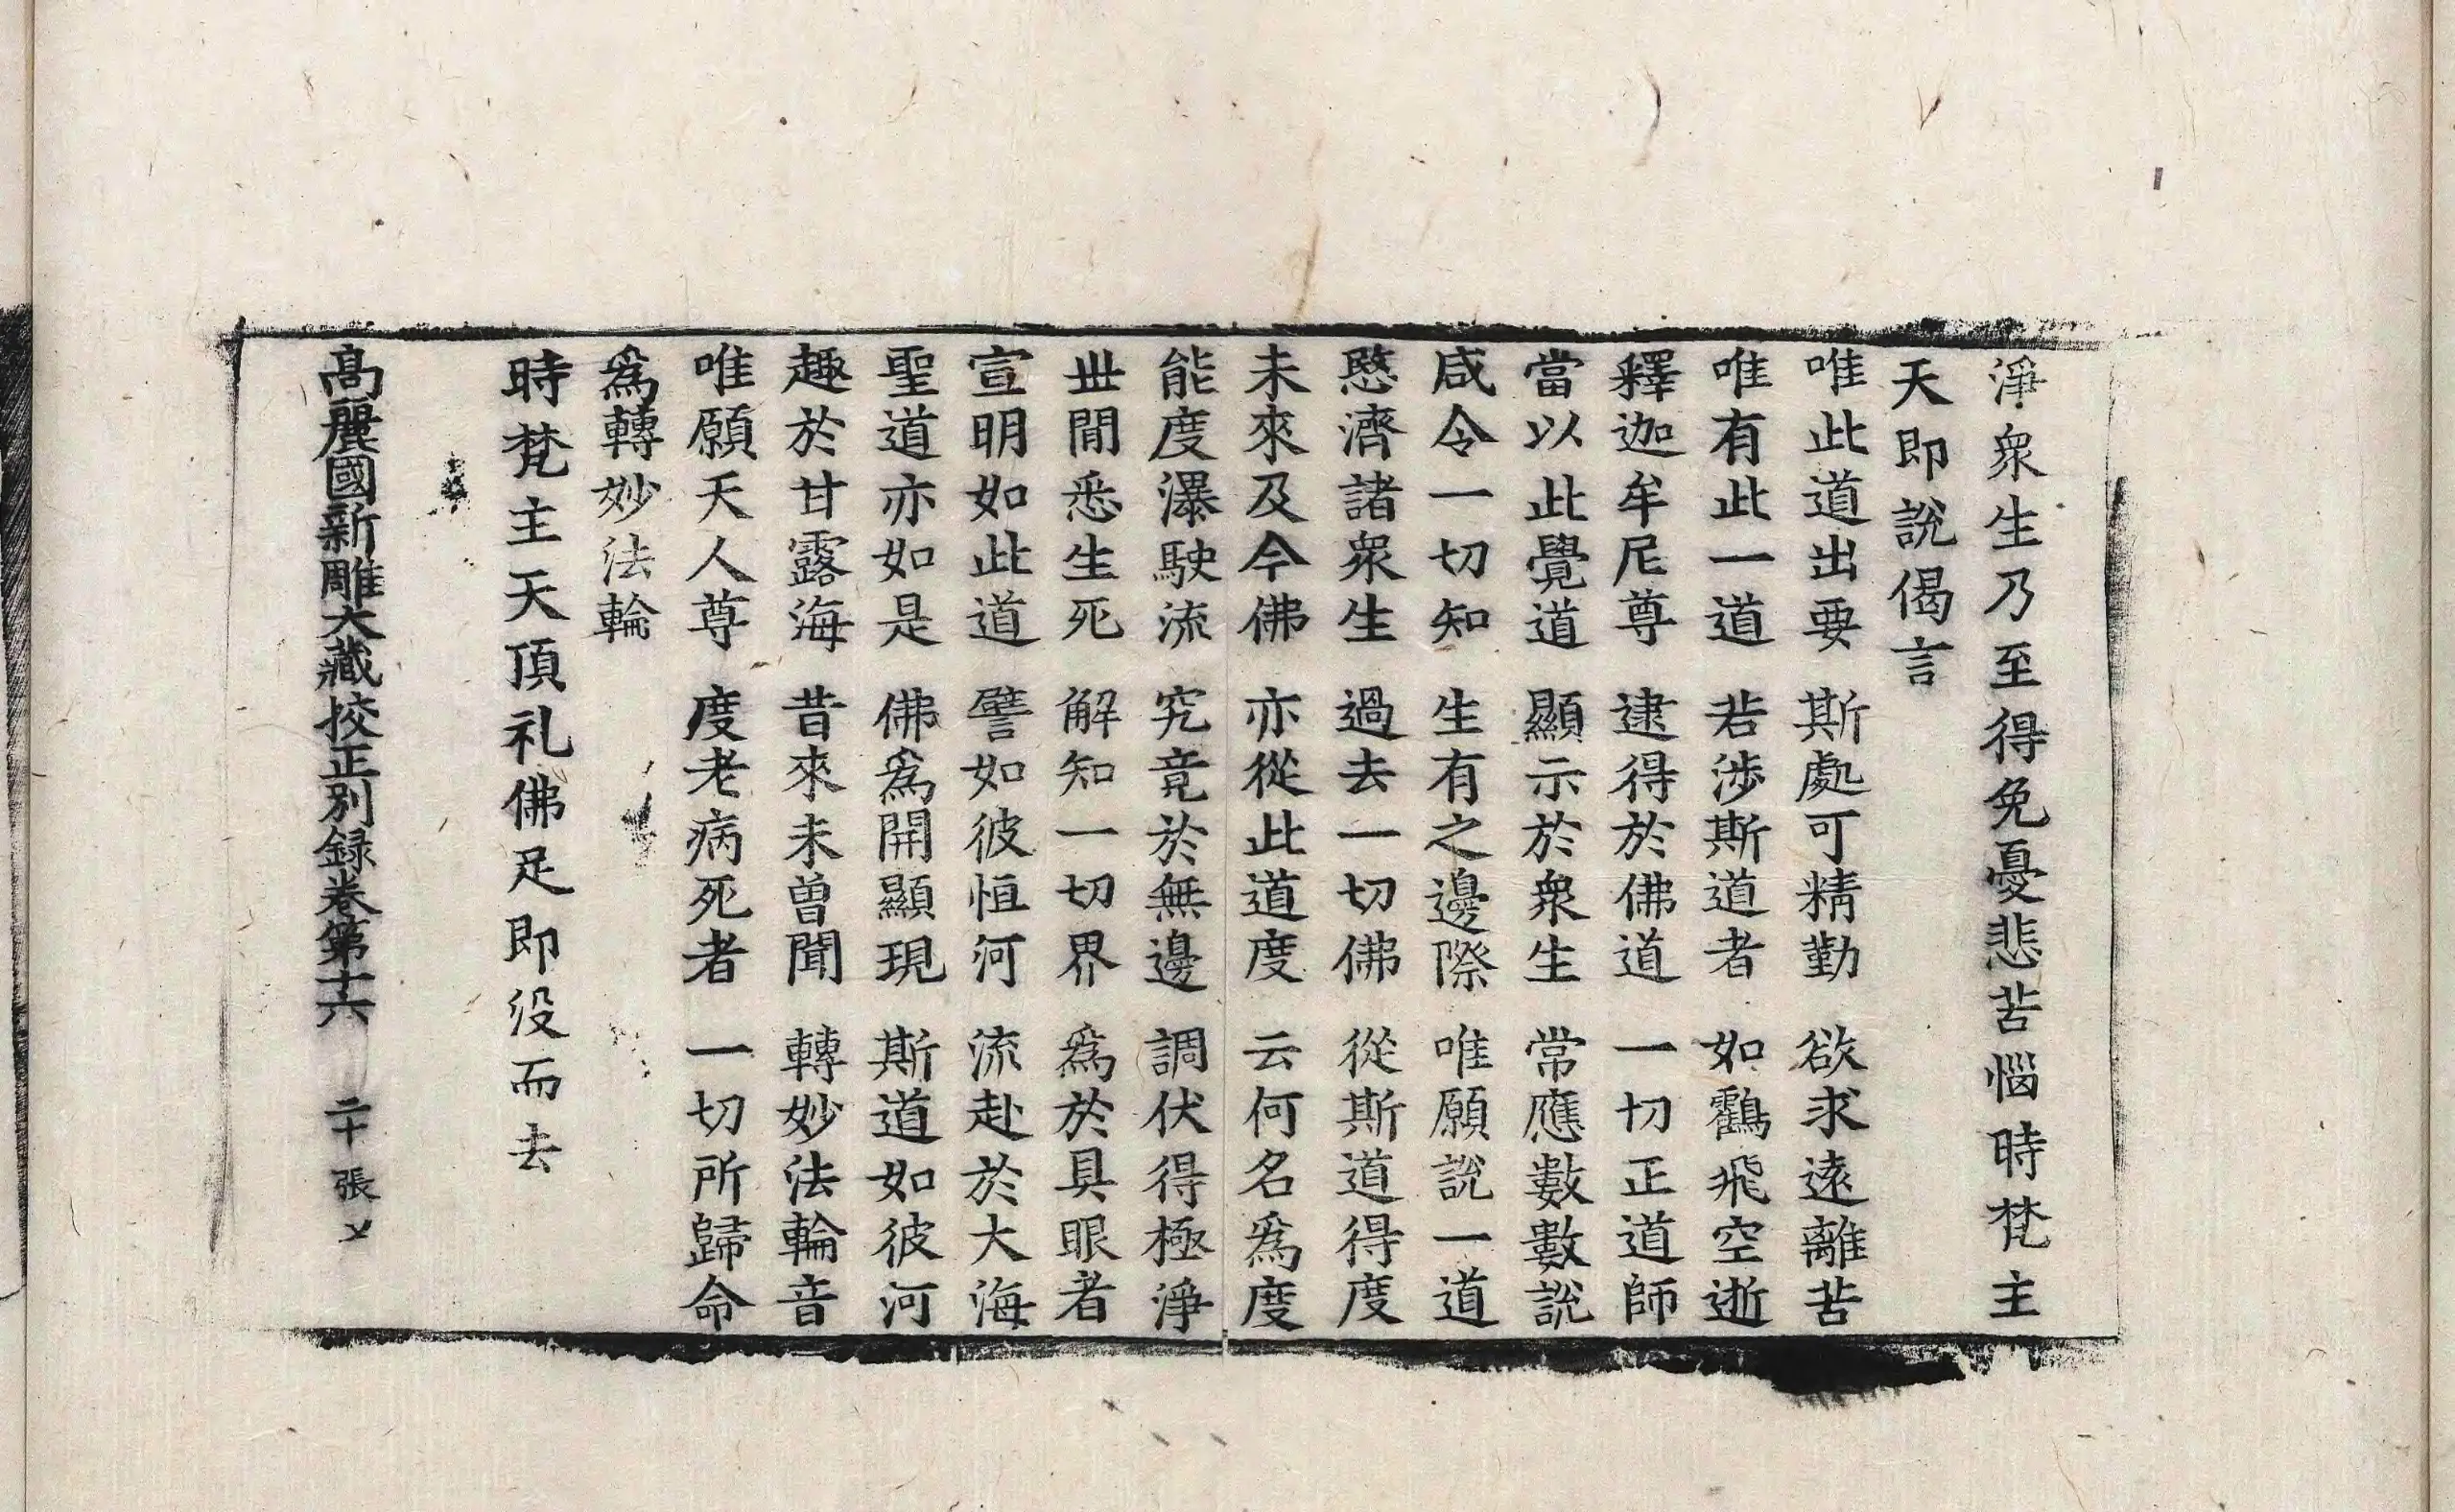 淨衆生乃至得免憂悲苦惱時梵主
天即說偈言
唯此道出要 斯處可精勤 欲求遠離苦
唯有此一道 若涉斯道者 如鸛飛空逝
釋迦牟尼尊 逮得於佛道 一切正道師
當以此覺道 顯示於衆生 常應數數說
咸令一切知 生有之邊際 唯願說一道
愍濟諸衆生 過去一切佛 從斯道得度
未來及今佛 亦從此道度 云何名爲度
能度瀑駛流 究竟於無邊 調伏得極淨
世間悉生死 解知一切界 爲於具眼者
宣明如此道 譬如彼恒河 流赴於大海
聖道亦如是 佛爲開顯現 斯道如彼河
趣於甘露海 昔來未曾聞 轉妙法輪音
唯願天人尊 度老病死者 一切所歸命
爲轉妙法輪
時梵主天頂礼佛足即没而去
高麗國新雕大藏挍正別録卷第十六 二十張